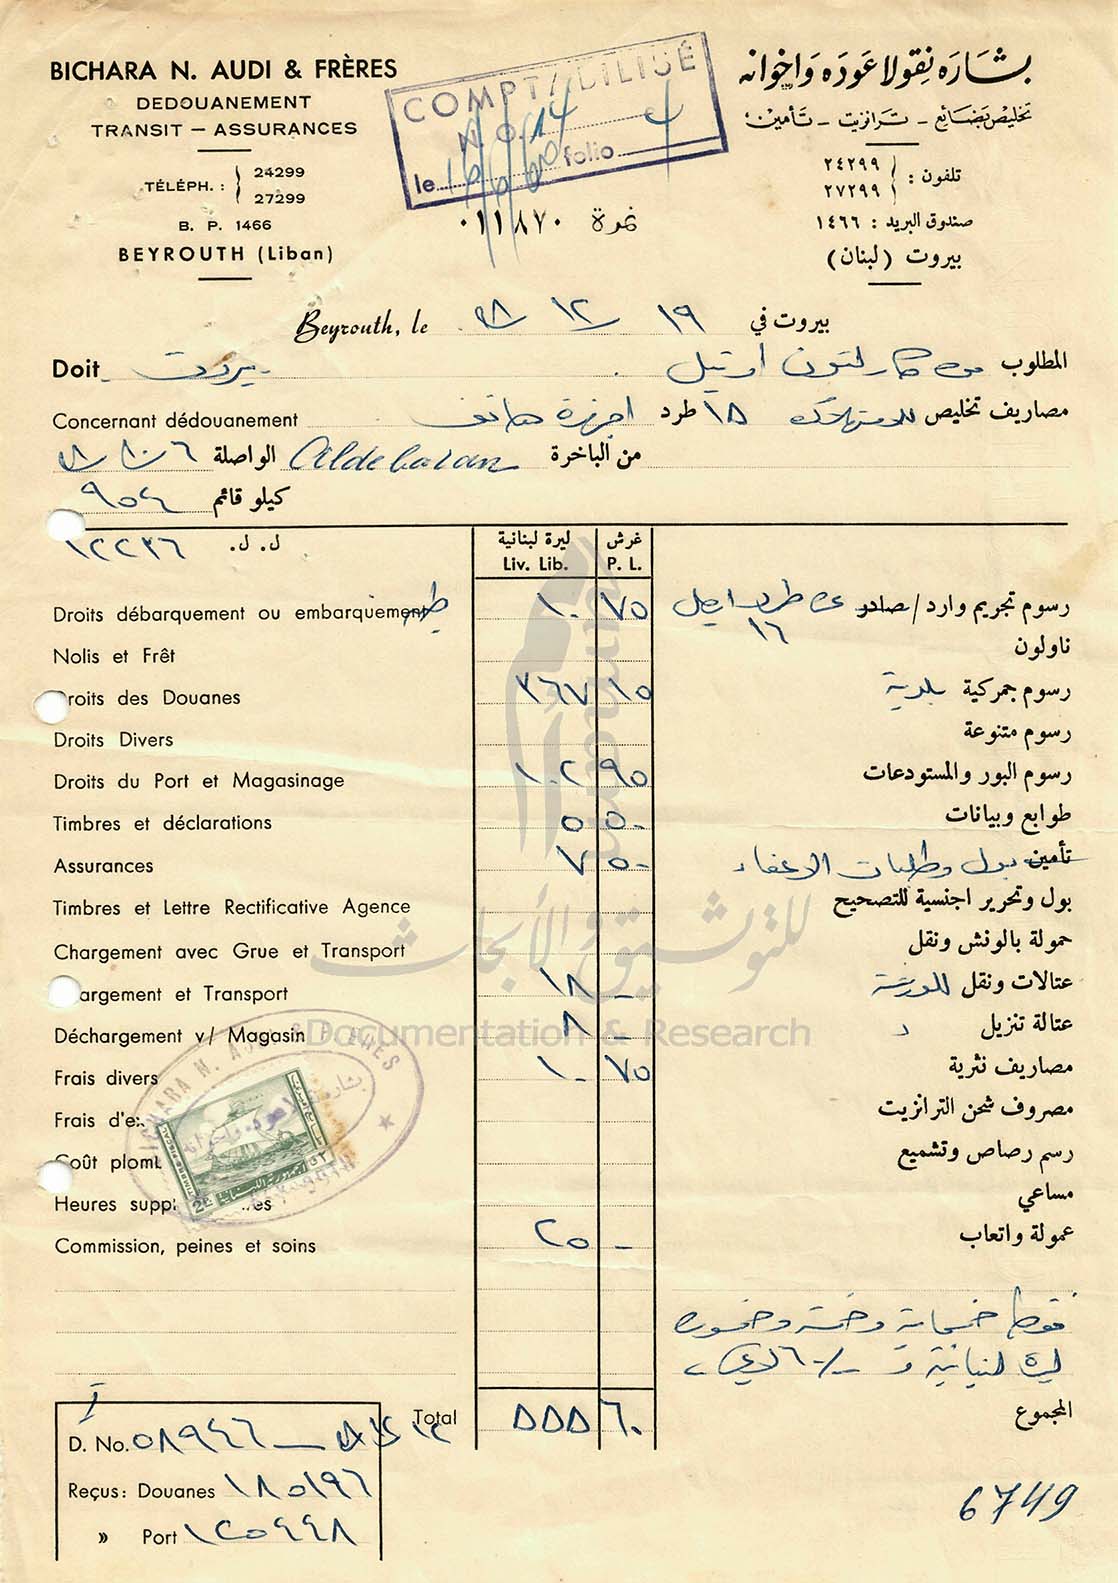 BICHARA N. AUDI & FRÈRES
DEDOUANEMENT
TRANSIT — ASSURANCES
TÉLÉPH. : 24299
27299
B. P. 1466
BEYROUTH (Liban)
COMPTABILISÉ
N. O. 14
le folio
نمرة ٠١١٨٧٠
بشاره نقولا عوده واخوانه
تخليص بضائع - ترانزيت - تأمين
تلفون : ٢٤٢٩٩
٢٧٢٩٩
صندوق البريد : ١٤٦٦
بيروت (لبنان)
Beyrouth, le ١٩ ١٢ بيروت في
Doit بيروت
المطلوب من كارلتون اوتيل
Concernant dédouanement
مصاريف تخليص للاستهلاك ١٥ طرد اجهزة هاتف
من الباخرة Aldebaran الواصلة
كيلو قائم ٩٥٤
ل. ل. ١٢٢٣٦
ليرة لبنانية غرش
Liv. Lib. P. L.
Droits débarquement ou embarquement ١٠ ٧٥ رسوم تجريم وارد/صادر
١٦
Nolis et Frêt ناولون
Droits des Douanes ٣٦٧ ١٥ رسوم جمركية بلدية
Droits Divers رسوم متنوعة
Droits du Port et Magasinage ١٠٢ ٩٥ رسوم البور والمستودعات
Timbres et déclarations ٥ ٥٠ طوابع وبيانات
Assurances ٧ ٥٠ تأمين بول وطلبات الاعفاء
Timbres et Lettre Rectificative Agence بول وتحرير اجنسية للتصحيح
Chargement avec Grue et Transport حمولة بالونش ونقل
argement et Transport ١٨ - عتالات ونقل للورشة
Déchargement v/ Magasin ٨ - عتالة تنزيل
Frais divers ١٠ ٧٥ مصاريف نثرية
Frais d'ex مصروف شحن الترانزيت
Coût plomb رسم رصاص وتشميع
Heures supp es مساعي
Commission, peines et soins ٢٥ - عمولة واتعاب
فقط خمسماية وخمسة وخمسون
ليرة لبنانية و ٦٠
Total ٥٥٥ ٦٠ المجموع
D. No. ٥٨٩٤٦
Reçus: Douanes ١٨٥١٩٦
» Port ١٢٥٤٤٨
6749
BICHARA N. AUDI & FRÈRES
بشاره ن. عوده واخوانه
TIMBRE FISCAL
الجمهورية اللبنانية
طابع اميري
للتوثيق والأبحاث
Documentation & Research